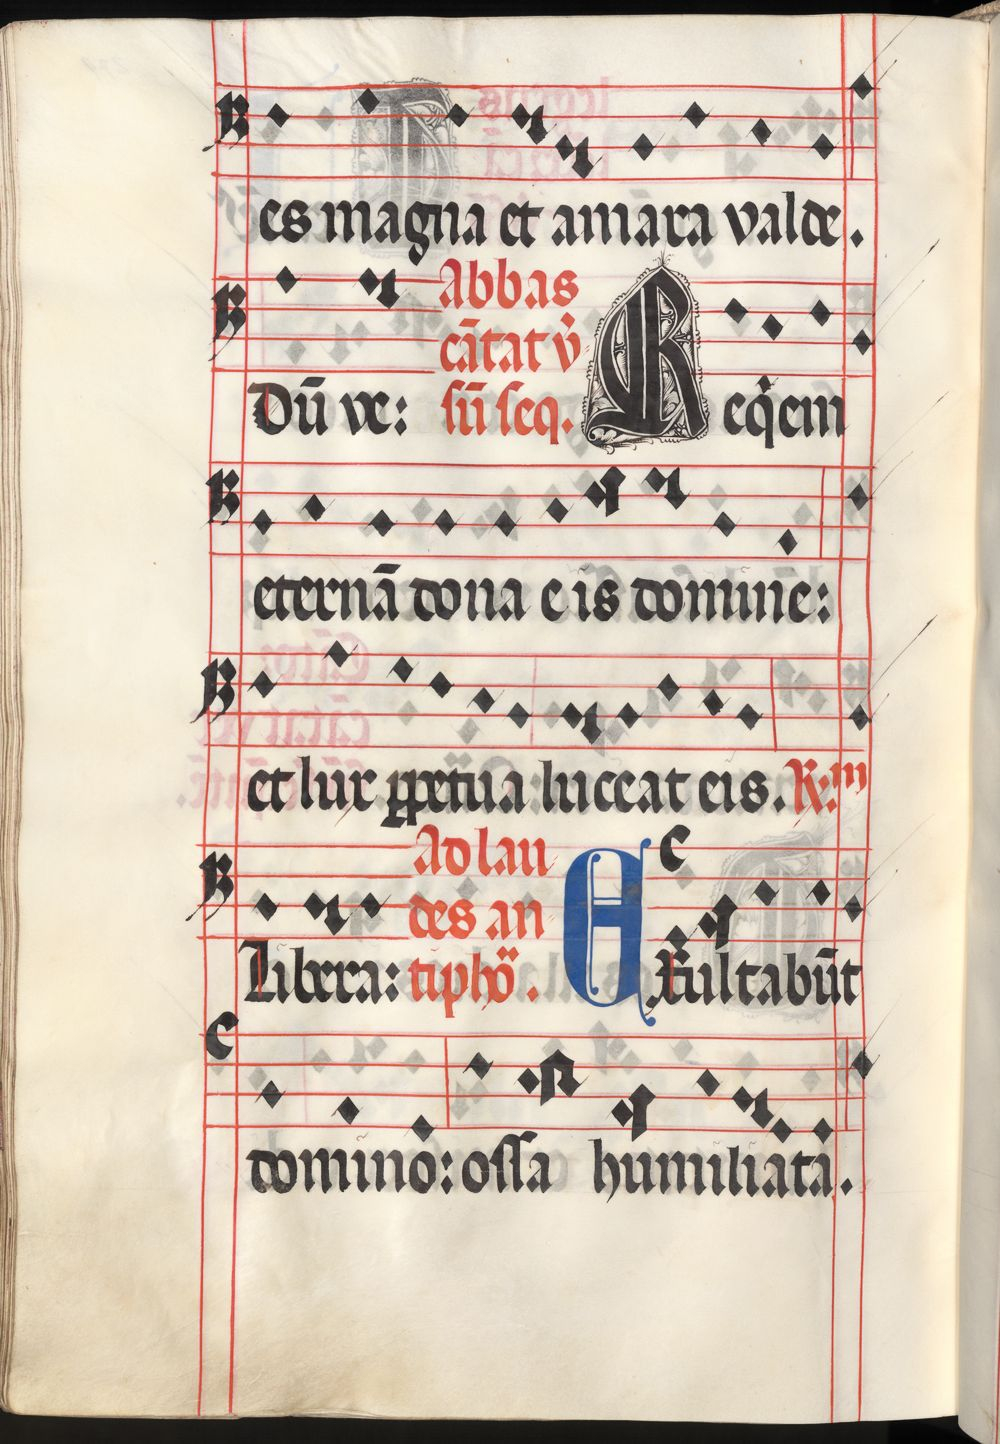 es magna et amara valde.
Abbas
cãtat v̉
Dũ ve: sũ seq. Req̉em
eternã dona eis domine:
et lux ꝑpetua luceat eis. R:m
Ad lau
des an
Libera: tiphõ. Exultabũt
domino: ossa humiliata.